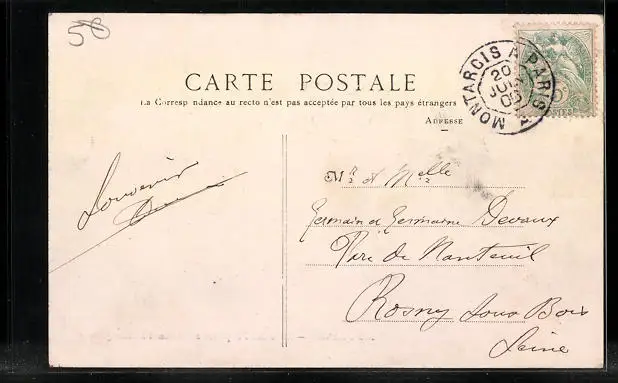 58
CARTE POSTALE
La Correspondance au recto n'est pas acceptée par tous les pays étrangers
ADRESSE
MONTARGIS A PARIS
20
JUIL
09
POSTES
Souvenir
Mr et Melle
Germain et Germaine Devaux
Rue de Nanteuil
Rosny sous Bois
Seine